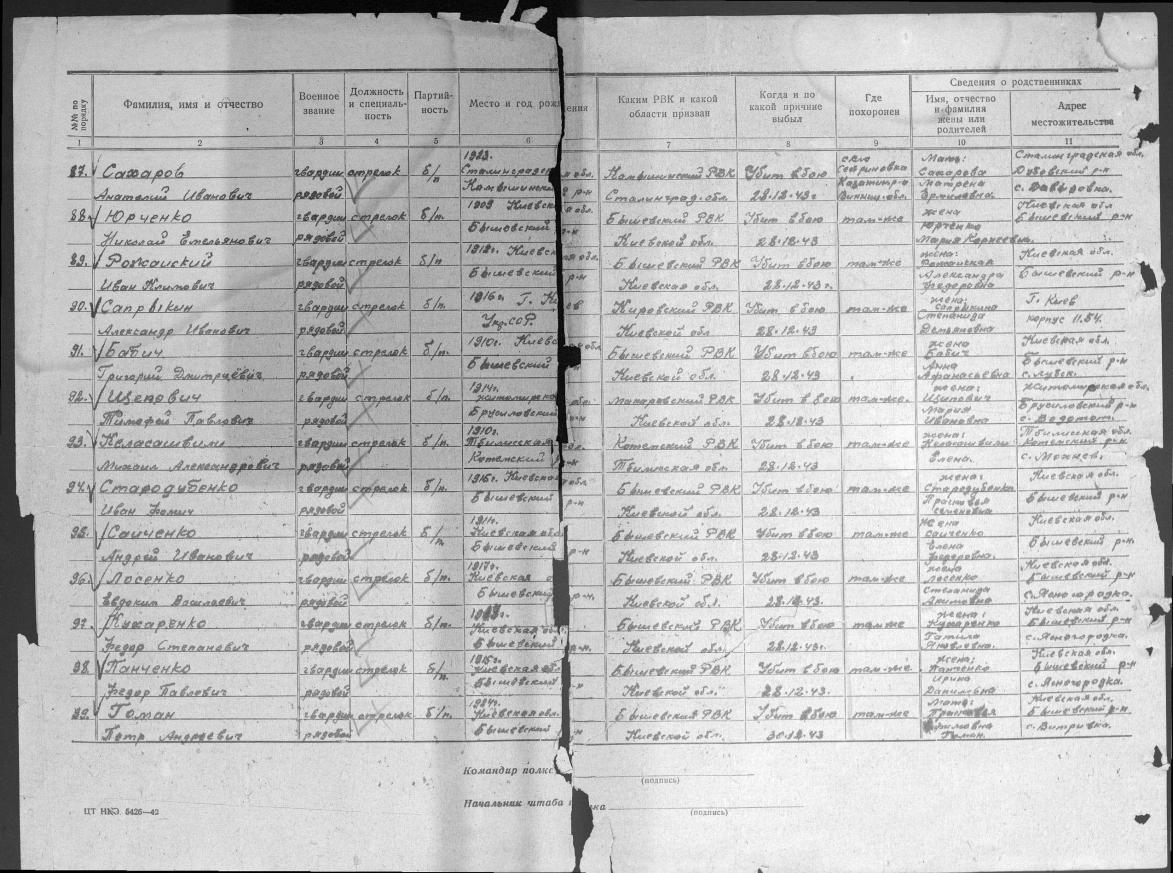 Сведения о родственниках
№№ по порядку Фамилия, имя и отчество Военное звание Должность и специальность Партийность Место и год рождения Каким РВК и какой области призван Когда и по какой причине выбыл Где похоронен Имя, отчество и фамилия жены или родителей Адрес местожительства
1 2 3 4 5 6 7 8 9 10 11
87. Сахаров гвардии стрелок б/п 1923. Сталинградская обл. Камышинский РВК Убит в бою село Мать: Сахарова Сталинградская обл. Дубовский р-н
Анатолий Иванович рядовой р-н Сталинград. обл. 28.12.43г Винниц. обл. Матрена Ермиловна с. Давыдовка.
88. Юрченко гвардии стрелок б/п 1909 Киевская обл. Бышевский РВК Убит в бою там-же жена Юрченко Киевская обл
Николай Емельянович рядовой Бышевский р-н Киевской обл. 28.12.43 Мария Корнеевна. Бышевский р-н
89. Рожанский гвардии стрелок б/п 1912г. Киевская обл. Бышевский РВК Убит в бою там-же жена: Рожанская Киевская обл.
Иван Климович рядовой Бышевский р-н Киевская обл. 28.12.43г. Александра Федоровна Бышевский р-н
90. Сапрыкин гвардии стрелок б/п. 1916г. Г. Киев Кировский РВК Убит в бою там-же жена: Сапрыкина Г. Киев
Александр Иванович рядовой Укр.ССР. Киевской обл 28.12.43 Степанида Демьяновна корпус 11.54.
91. Бабич гвардии стрелок б/п. 1910г. Киевская обл Бышевский РВК Убит в бою там-же жена Бабич Киевская обл
Григорий Дмитриевич рядовой Бышевский Киевской обл. 28.12.43 Анна Афанасьевна Бышевский р-н
92. Щепович гвардии стрелок б/п. 1914г. житомирская обл. Макаровский РВК Убит в бою там-же. жена: Щепович житомирская обл.
Тимофей Павлович рядовой Брусиловский р-н Киевской обл. 28.12.43 Мария Ивановна Брусиловский р-н
93. Келасашвили гвардии стрелок б/п 1910г. Тбилисская обл. РВК Убит в бою там-же жена: Келасашвили Тбилисская обл.
Михаил Александрович рядовой р-н Тбилисская обл. 28.12.43 Елена.
94. Стародубенко гвардии стрелок б/п. 1915г. Киевская обл Бышевский РВК Убит в бою там-же жена: Стародубенко Киевская обл
Иван Фомич рядовой Бышевский р-н Киевской обл. 28.12.43 Прасковья Семеновна Бышевский р-н
95. Сайченко гвардии стрелок б/п. 1911г. Киевская обл. Бышевский РВК Убит в бою там-же жена Сайченко Киевская обл.
Андрей Иванович рядовой Бышевский р-н Киевской обл. 28.12.43 Елена Федоровна. Бышевский р-н.
96. Лосенко гвардии стрелок б/п. 1917г. Киевская о Бышевский РВК Убит в бою там-же жена Лосенко Киевская обл. Бышевский р-н
Евдоким Васильевич рядовой Бышевский р-н. Киевской обл. 28.12.43. Степанида Акимовна с. Ясногородка.
97. Кухаренко гвардии стрелок б/п. Киевская обл. Бышевский РВК Убит в бою там-же жена: Кухаренко Киевская обл. Бышевский р-н
Федор Степанович рядовой Бышевский р-н. Киевской обл. 28.12.43г. Яковлевна. с. Ясногородка.
98. Панченко гвардии стрелок б/п. 1915г. Киевская обл Бышевский РВК Убит в бою там-же жена: Панченко Киевская обл. Бышевский р-н
Федор Павлович рядовой Бышевский р-н Киевской обл. 28.12.43. Ирина Даниловна с. Ясногородка.
99. Гоман гвардии стрелок б/п. 1924г. Киевская обл. Бышевский РВК Убит в бою там-же Мать: Прасковья Киевская обл Бышевский р-н
Петр Андреевич рядовой Бышевский р-н Киевской обл. 30.12.43 Гоман.
Командир полка
(подпись)
Начальник штаба полка
(подпись)
ЦТ НКО 5426—42